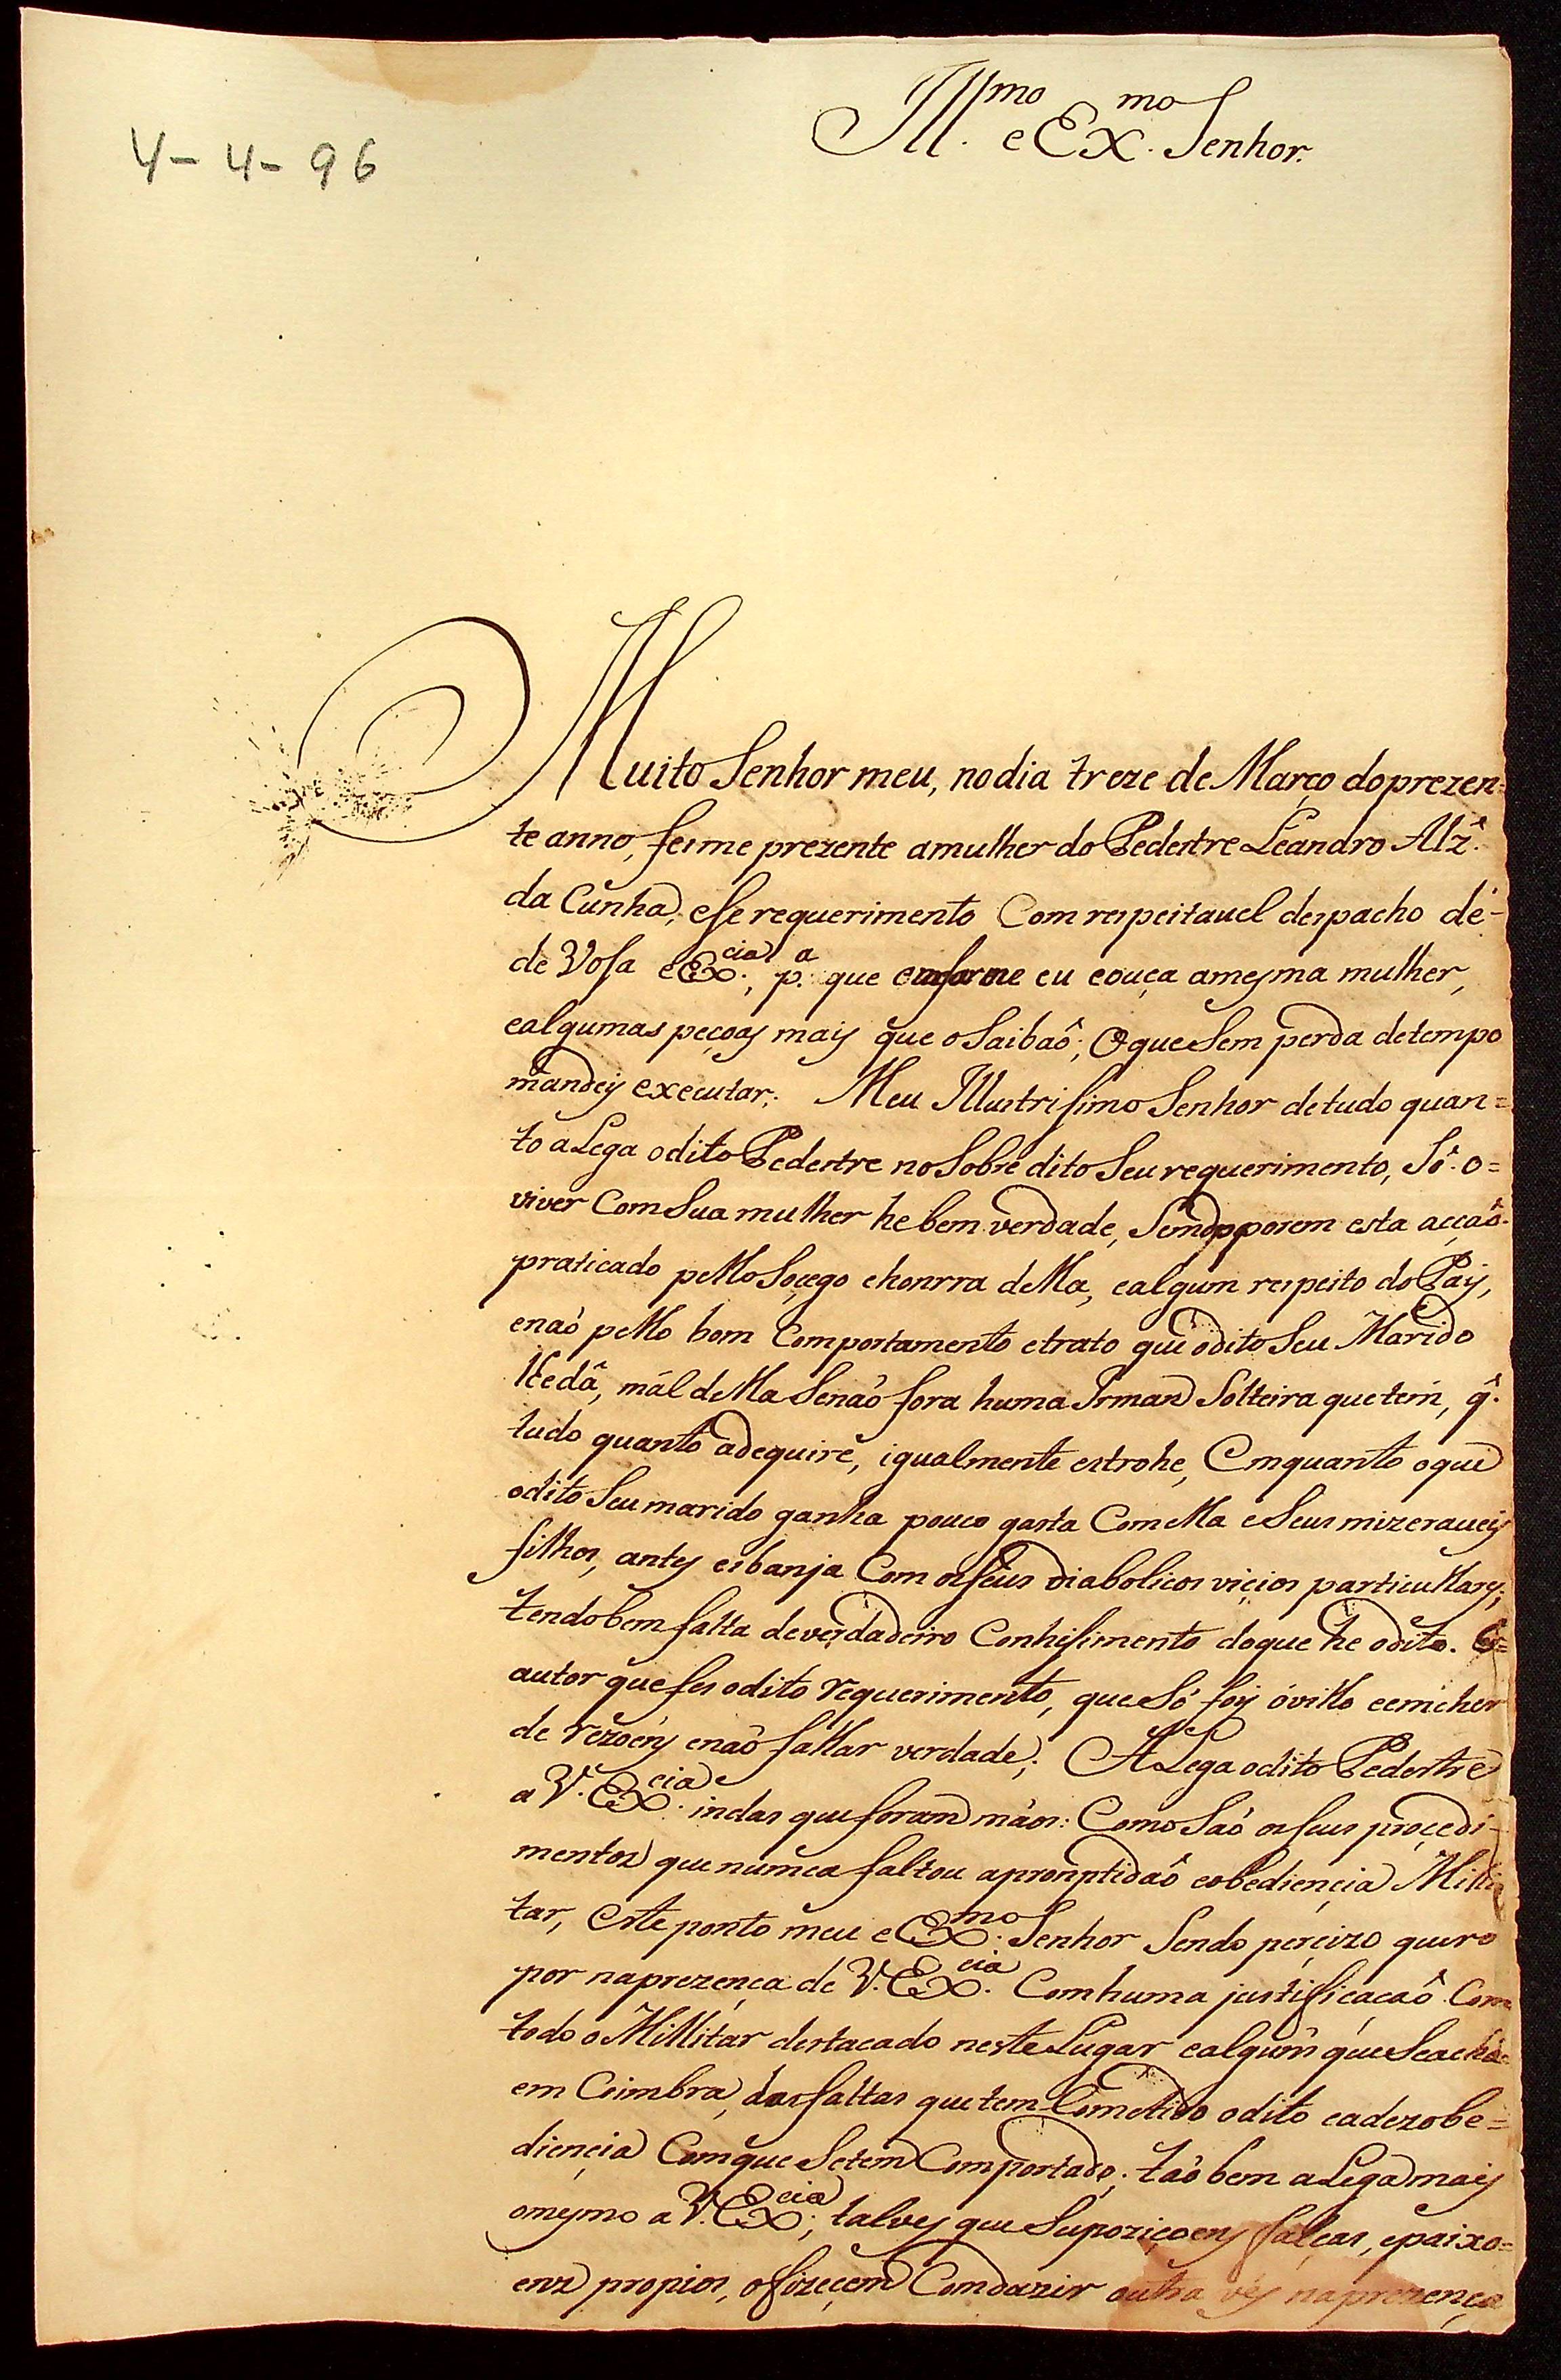 Ill.mo e Ex.mo Senhor.
4-4-96
Muito Senhor meu, no dia treze de Março do prezen=
te anno, fesme prezente a mulher do Pedestre Leandro Alz.
da Cunha, esse requerimento Com respeitavel despacho dé-
de Vosa eEx.cia, p.a que emforme eu e ouça a mesma mulher,
e algumas peçoas mais que o Saibaõ; O que Sem perda de tempo
mandey executar. Meu Illustrisimo Senhor de tudo quan=
to aLega o dito Pedestre no Sobre dito Seu requerimento, Só o=
viver Com Sua mulher he bem verdade, Sendo porem esta acçaõ
praticado pello Soçego e honrra della, e algum respeito do Pay,
e naõ pello bom Comportamento e trato que o dito Seu Marido
lhe dâ, mál della Senaõ fora huma Irman Solteira que tem, q.
tudo quanto adequire, igualmente estrohe, Emquanto o que
o dito Seu marido ganha pouco gasta Com ella e Seus mizeraveis
filhos, antes esbanja Com os seus diabolicos viçios particullares;
tendo bem falta de verdadeiro Conhesimento do que he o dito.
autor que fes o dito requerimento, que Só foy óvillo e emcher
de rezoens e naõ fallar verdade; ALega o dito Pedestre
a V. Ex.cia indas que foram máos: Como Saõ os seus proçedi-
mentos que numca faltou a promptidaõ e obediençia Milli
tar, Este ponto meu eEx.mo Senhor Sendo perçizo quero
por na prezença de V. Ex.cia Com huma justificacaõ Com
todo o Millitar destacado neste Lugar e algum que Se acha
em Coimbra, das faltas que tem Cometido o dito e a dezobe=
diençia Com que Se tem Comportado; taõ bem aLega mais
o mesmo a V. Ex.cia; talves que Supoziçoens falças, e paixo=
ens propios, o fizeçem Conduzir outra vês na prezença